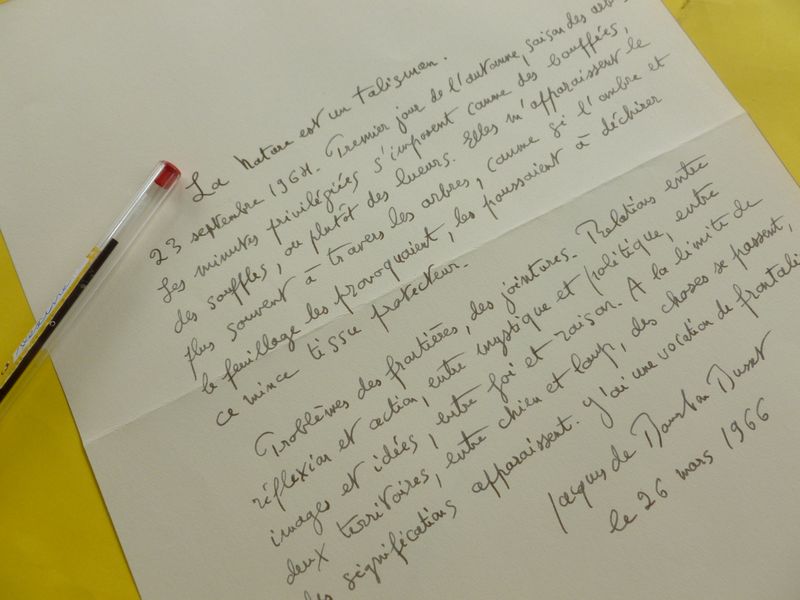 La Nature est un talisman.
23 septembre 1964. Premier jour de l'automne, saison des
Les minutes privilégiées s'imposent comme des bouffées,
des souffles, ou plutôt des lueurs. Elles m'apparaissent le
plus souvent à travers les arbres, comme si l'ombre et
le feuillage les provoquaient, les poussaient à déchirer
ce mince tissu protecteur.
Problèmes des frontières, des jointures. Relations entre
réflexion et action, entre mystique et politique, entre
images et idées, entre foi et raison. A la limite de
deux territoires, entre chien et loup, des choses se passent,
des significations apparaissent. J'ai une vocation de frontali
Jacques de Bourbon Busset
le 26 mars 1966